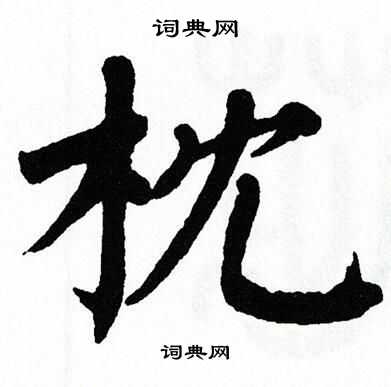 词典网
枕
词典网